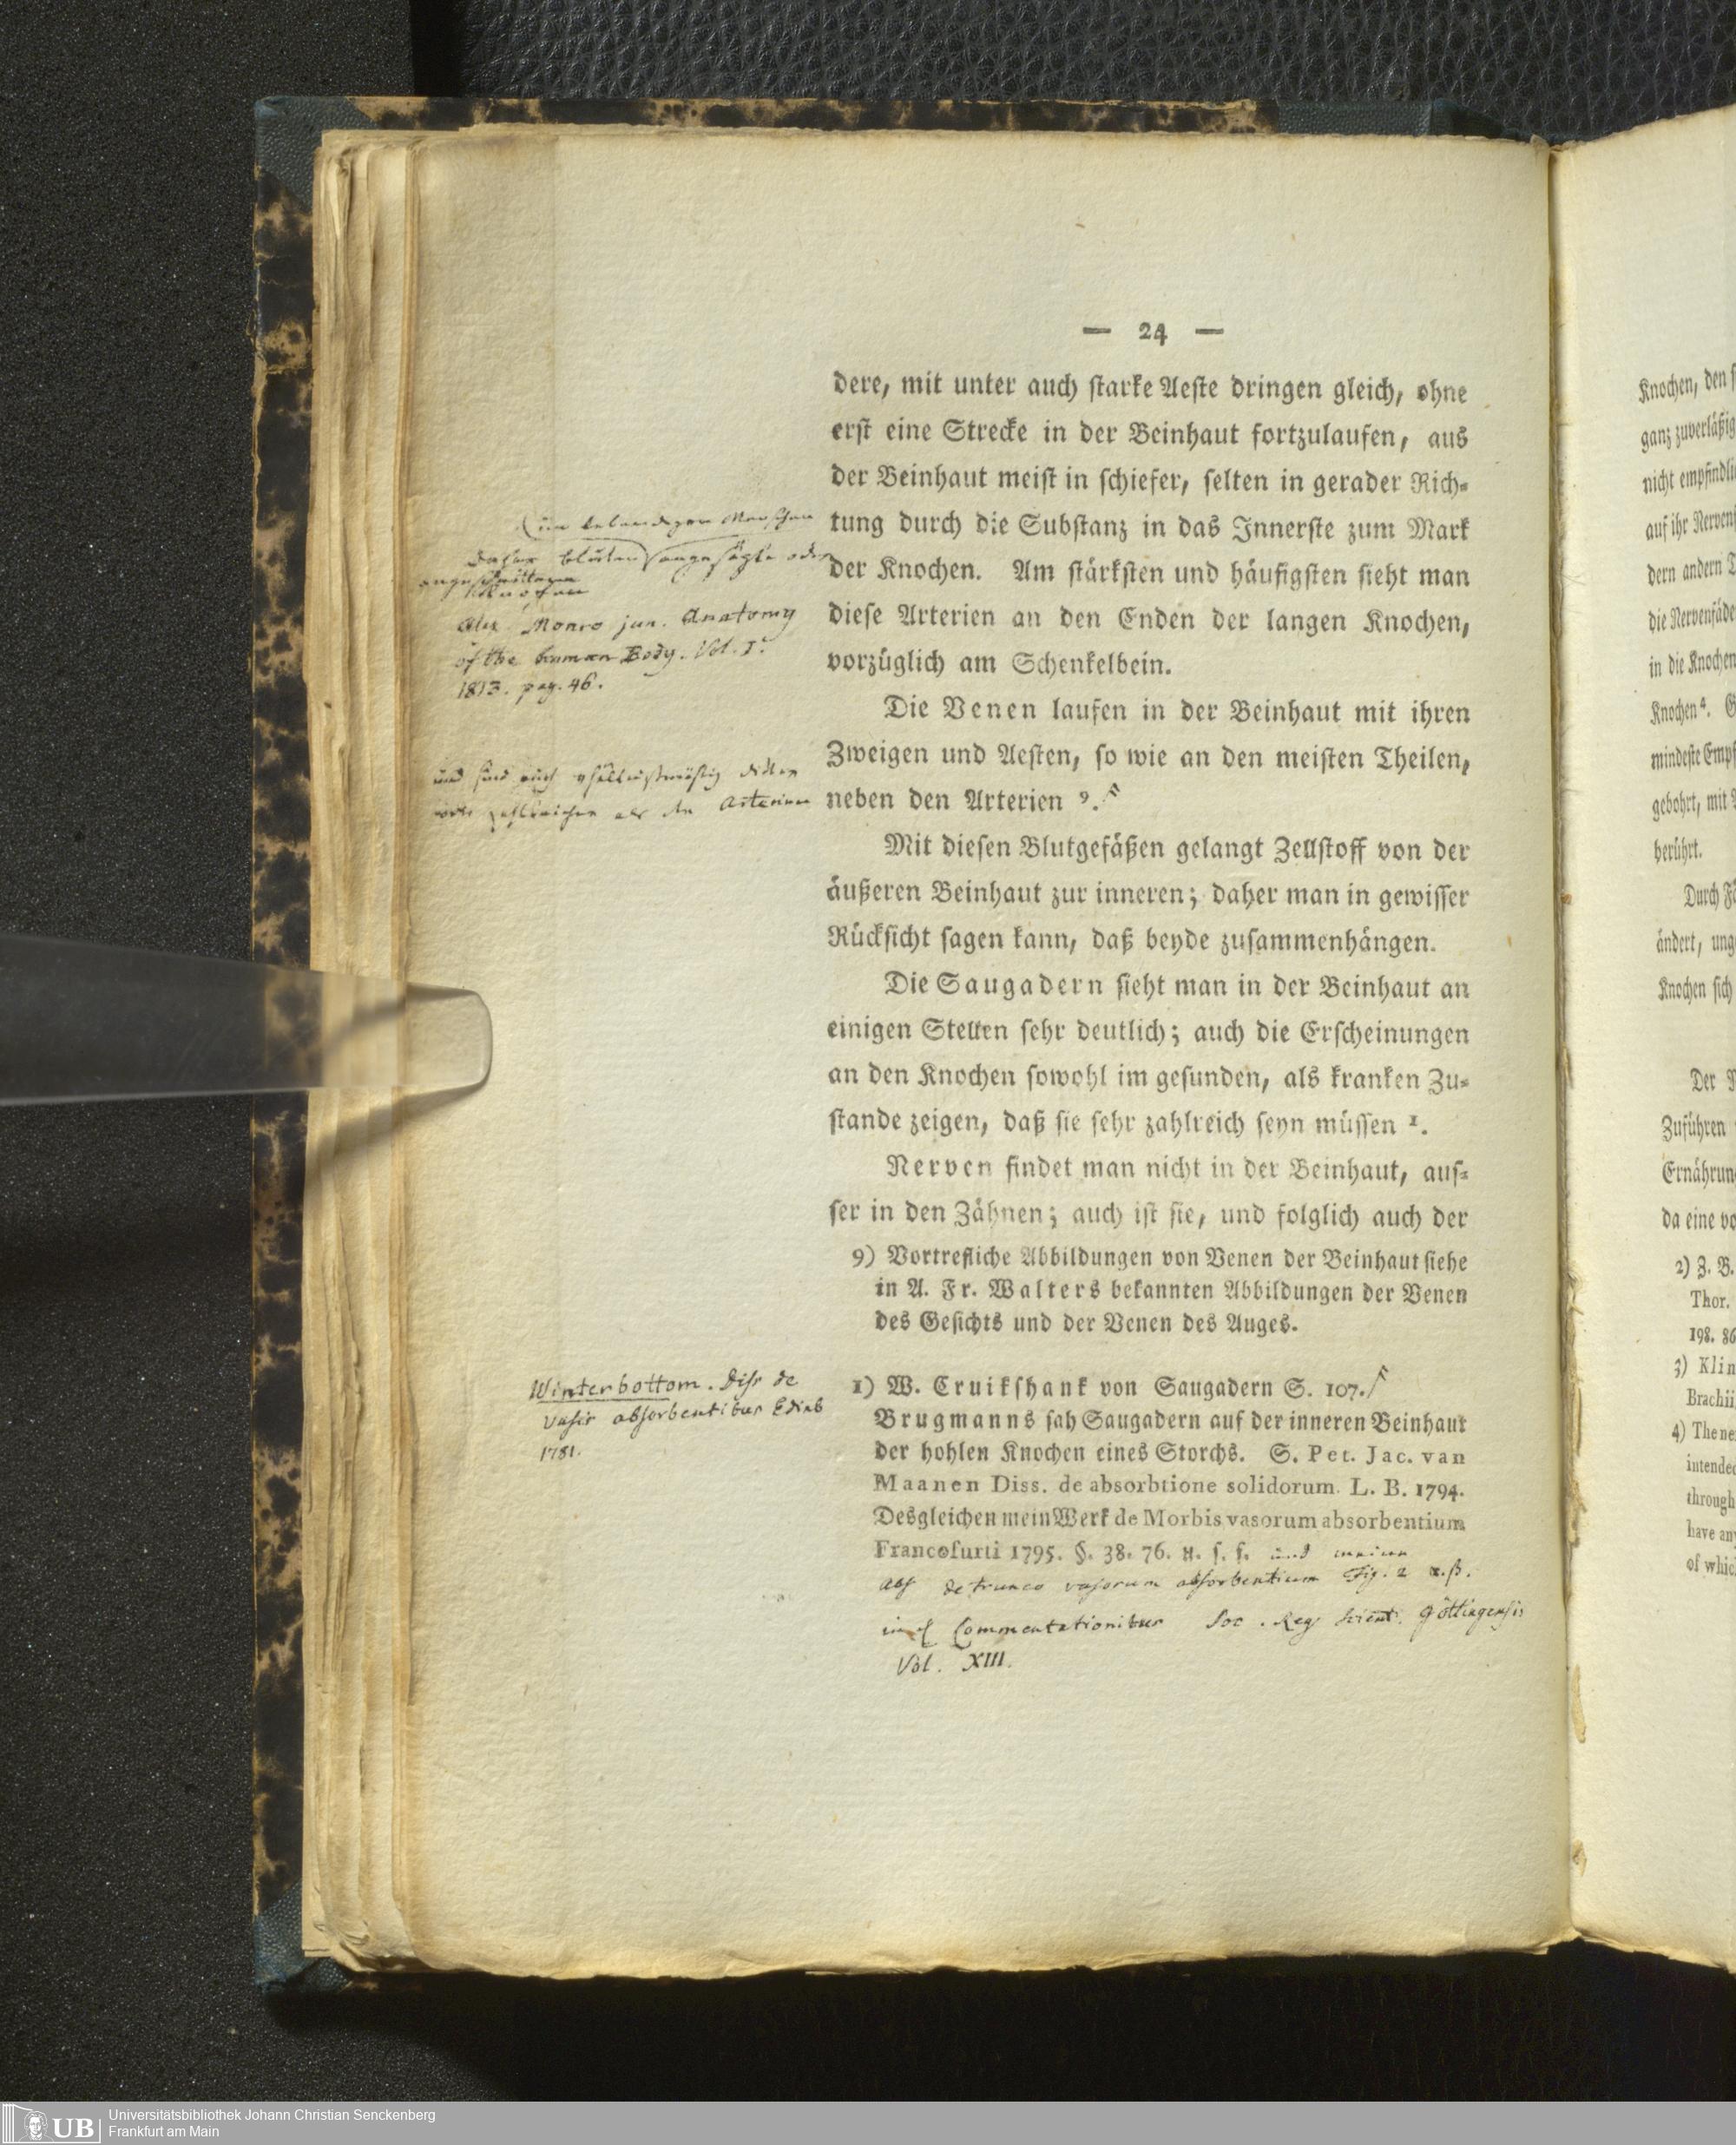 — 24 —
dere, mit unter auch ſtarke Aeſte dringen gleich, ohne
erſt eine Strecke in der Beinhaut fortzulaufen, aus
der Beinhaut meiſt in ſchiefer, ſelten in gerader Rich⸗
tung durch die Subſtanz in das Innerſte zum Mark
der Knochen. Am ſtärkſten und häufigſten ſieht man
dieſe Arterien an den Enden der langen Knochen,
vorzüglich am Schenkelbein.
Die Venen laufen in der Beinhaut mit ihren
Zweigen und Aeſten, ſo wie an den meiſten Theilen,
neben den Arterien 9.
Mit dieſen Blutgefäßen gelangt Zellſtoff von der
äußeren Beinhaut zur inneren; daher man in gewiſſer
Rückſicht ſagen kann, daß beyde zuſammenhängen.
Die Saugadern ſieht man in der Beinhaut an
einigen Stellen ſehr deutlich; auch die Erſcheinungen
an den Knochen ſowohl im geſunden, als kranken Zu⸗
ſtande zeigen, daß ſie ſehr zahlreich ſeyn müſſen 1.
Nerven findet man nicht in der Beinhaut, auſ⸗
ſer in den Zähnen; auch iſt ſie, und folglich auch der
9) Vortrefliche Abbildungen von Venen der Beinhaut ſiehe
in A. Fr. Walters bekannten Abbildungen der Venen
des Geſichts und der Venen des Auges.
1) W. Cruikſhank von Saugadern S. 107.
Brugmanns ſah Saugadern auf der inneren Beinhaut
der hohlen Knochen eines Storchs. S. Pet. Jac. van
Maanen Diss. de absorbtione solidorum. L. B. 1794.
Desgleichen mein Werk de Morbis vasorum absorbentium
Francofurti 1795. §. 38. 76. u. ſ. f. und meine
Abh de trunco vasorum absorbentium Fig. 2 α.β.
in Commentationibus Soc. Reg. Scient. Göttingensis
Vol. XIII.
im lebendigen Menschen
Daher bluten angesägte oder
angeschnittene
Knochen
Alex Monro jun. Anatomy
of the human Body. Vol. I.
1813. pag. 46.
und sind auch
zahlreicher als die Arterien
Winterbottom. Diss de
vasis absorbentibus Edinb
1781.
Knochen, den
ganz zuverläßig
nicht empfindli
auf ihr Nerven
dern andern
die Nervenfäde
in die Knochen
Knochen 4.
mindeſte Empf
gebohrt, mit
berührt.
Durch
ändert, ung
Knochen ſich
Der
Zuführen
Ernährun
da eine vo
2) Z. B.
Thor.
198. 86
3) Klin
Brachii
4) The ne
intended
through
have an
of whic
UB
Universitätsbibliothek Johann Christian Senckenberg
Frankfurt am Main